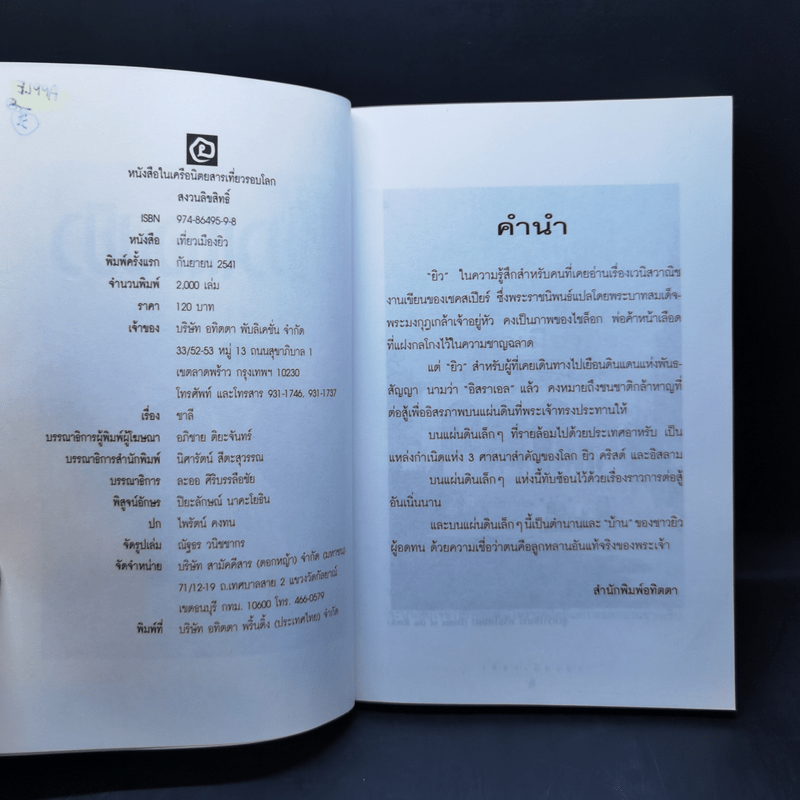 หนังสือในเครือนิตยสารเที่ยวรอบโลก
สงวนลิขสิทธิ์
ISBN 974-86495-9-8
หนังสือ เที่ยวเมืองยิว
พิมพ์ครั้งแรก กันยายน 2541
จำนวนพิมพ์ 2,000 เล่ม
ราคา 120 บาท
เจ้าของ บริษัท อทิตตา พับลิเคชั่น จำกัด
33/52-53 หมู่ 13 ถนนสุขาภิบาล 1
เขตลาดพร้าว กรุงเทพฯ 10230
โทรศัพท์ และโทรสาร 931-1746, 931-1737
เรื่อง ชาลี
บรรณาธิการผู้พิมพ์ผู้โฆษณา อภิชาย ติยะจันทร์
บรรณาธิการสำนักพิมพ์ นิศารัตน์ สีตะสุวรรณ
บรรณาธิการ ละออ ศิริบรรลือชัย
พิสูจน์อักษร ปิยะลักษณ์ นาคะโยธิน
ปก ไพรัตน์ คงทน
จัดรูปเล่ม ณัฐอร วนิชชากร
จัดจำหน่าย บริษัท สามัคคีสาร (ดอกหญ้า) จำกัด (มหาชน)
71/12-19 ถ.เทศบาลสาย 2 แขวงวัดกัลยาณ์
เขตธนบุรี กทม. 10600 โทร. 466-0579
พิมพ์ที่ บริษัท อทิตตา พริ้นติ้ง (ประเทศไทย) จำกัด
คำนำ
"ยิว" ในความรู้สึกสำหรับคนที่เคยอ่านเรื่องเวนิสวาณิช
งานเขียนของเชคสเปียร์ ซึ่งพระราชนิพนธ์แปลโดยพระบาทสมเด็จ-
พระมงกุฎเกล้าเจ้าอยู่หัว คงเป็นภาพของไชล็อก พ่อค้าหน้าเลือด
ที่แฝงกลโกงไว้ในความชาญฉลาด
แต่ "ยิว" สำหรับผู้ที่เคยเดินทางไปเยือนดินแดนแห่งพันธ-
สัญญา นามว่า "อิสราเอล" แล้ว คงหมายถึงชนชาติกล้าหาญที่
ต่อสู้เพื่ออิสรภาพบนแผ่นดินที่พระเจ้าทรงประทานให้
บนแผ่นดินเล็กๆ ที่รายล้อมไปด้วยประเทศอาหรับ เป็น
แหล่งกำเนิดแห่ง 3 ศาสนาสำคัญของโลก ยิว คริสต์ และอิสลาม
บนแผ่นดินเล็กๆ แห่งนี้ทับซ้อนไว้ด้วยเรื่องราวการต่อสู้
อันเนิ่นนาน
และบนแผ่นดินเล็กๆ นี้เป็นตำนานและ "บ้าน" ของชาวยิว
ผู้อดทน ด้วยความเชื่อว่าตนคือลูกหลานอันแท้จริงของพระเจ้า
สำนักพิมพ์อทิตตา